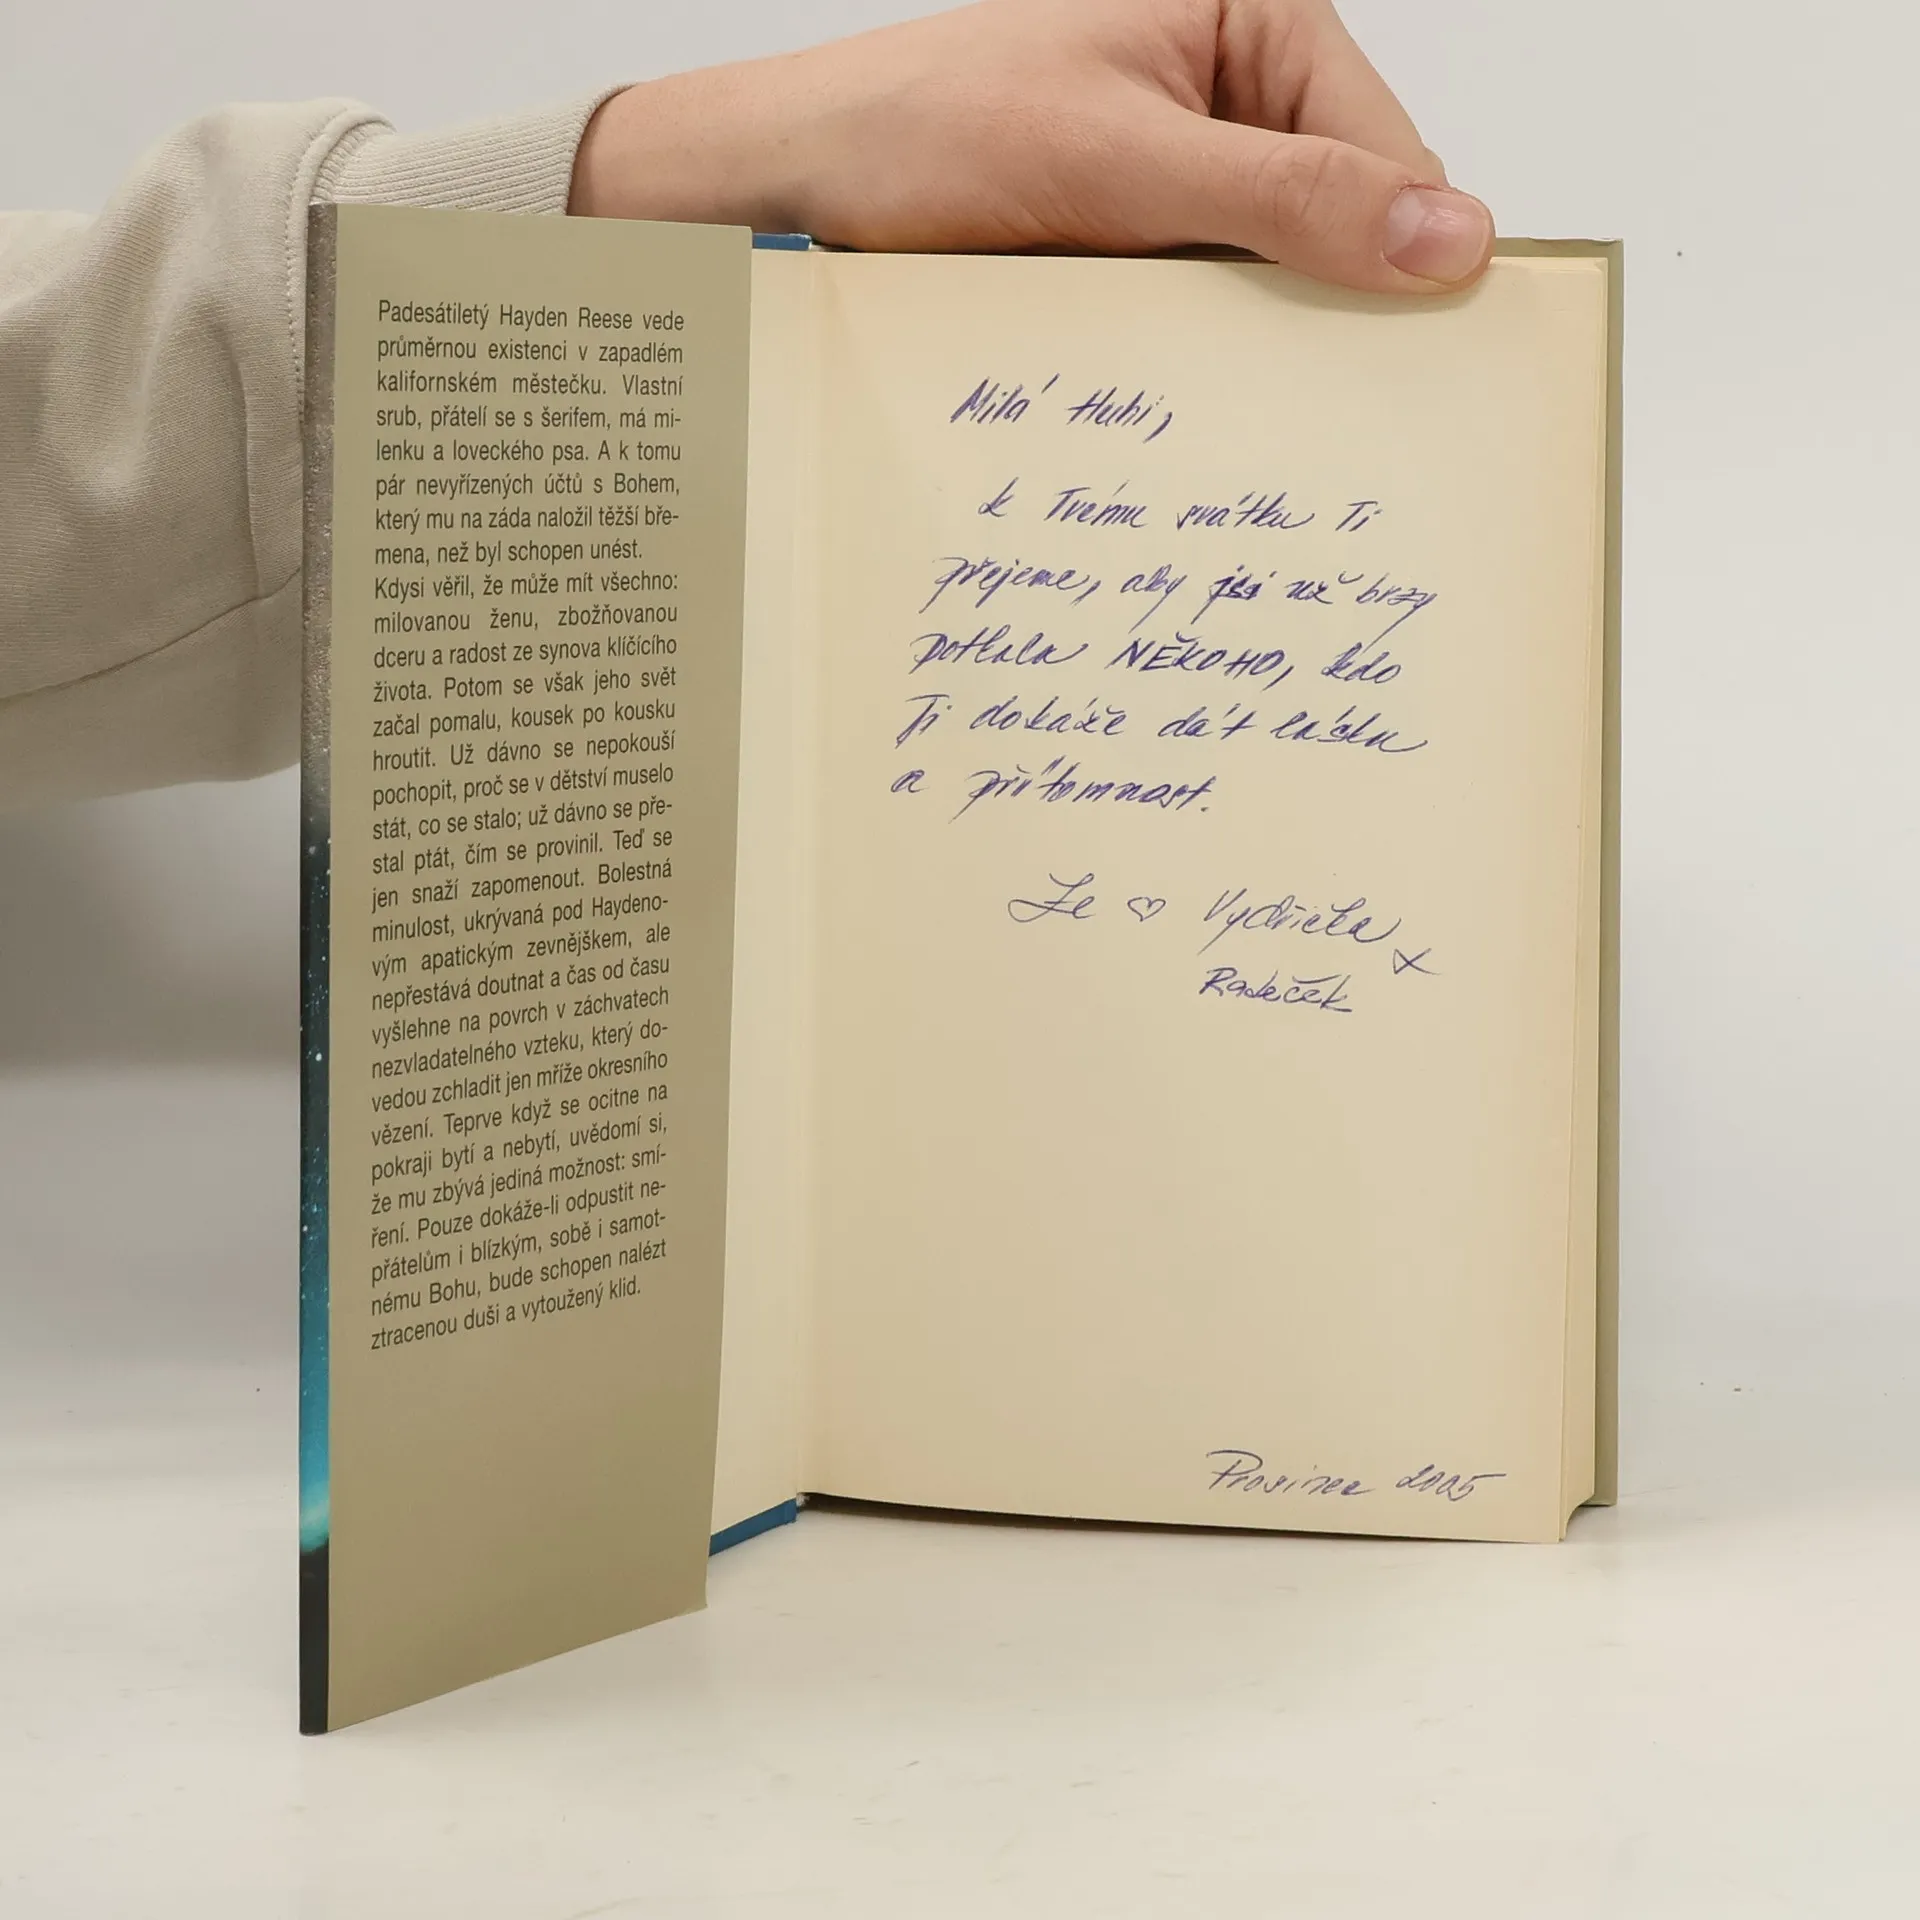 Padesátiletý Hayden Reese vede
průměrnou existenci v zapadlém
kalifornském městečku. Vlastní
srub, přátelí se s šerifem, má mi-
lenku a loveckého psa. A k tomu
pár nevyřízených účtů s Bohem,
který mu na záda naložil těžší bře-
mena, než byl schopen unést.
Kdysi věřil, že může mít všechno:
milovanou ženu, zbožňovanou
dceru a radost ze synova klíčícího
života. Potom se však jeho svět
začal pomalu, kousek po kousku
hroutit. Už dávno se nepokouší
pochopit, proč se v dětství muselo
stát, co se stalo; už dávno se pře-
stal ptát, čím se provinil. Teď se
jen snaží zapomenout. Bolestná
minulost, ukrývaná pod Haydeno-
vým apatickým zevnějškem, ale
nepřestává doutnat a čas od času
vyšlehne na povrch v záchvatech
nezvladatelného vzteku, který do-
vedou zchladit jen mříže okresního
vězení. Teprve když se ocitne na
pokraji bytí a nebytí, uvědomí si,
že mu zbývá jediná možnost: smí-
ření. Pouze dokáže-li odpustit ne-
přátelům i blízkým, sobě i samot-
nému Bohu, bude schopen nalézt
ztracenou duši a vytoužený klid.
Milá
k Tvému svátku Ti
přejeme, aby jsi už brzy
potkala NĚKOHO, kdo
Ti dokáže dát lásku
a přítomnost.
Ze ♡ Vydřička
x
Radeček
Prosinec 2005